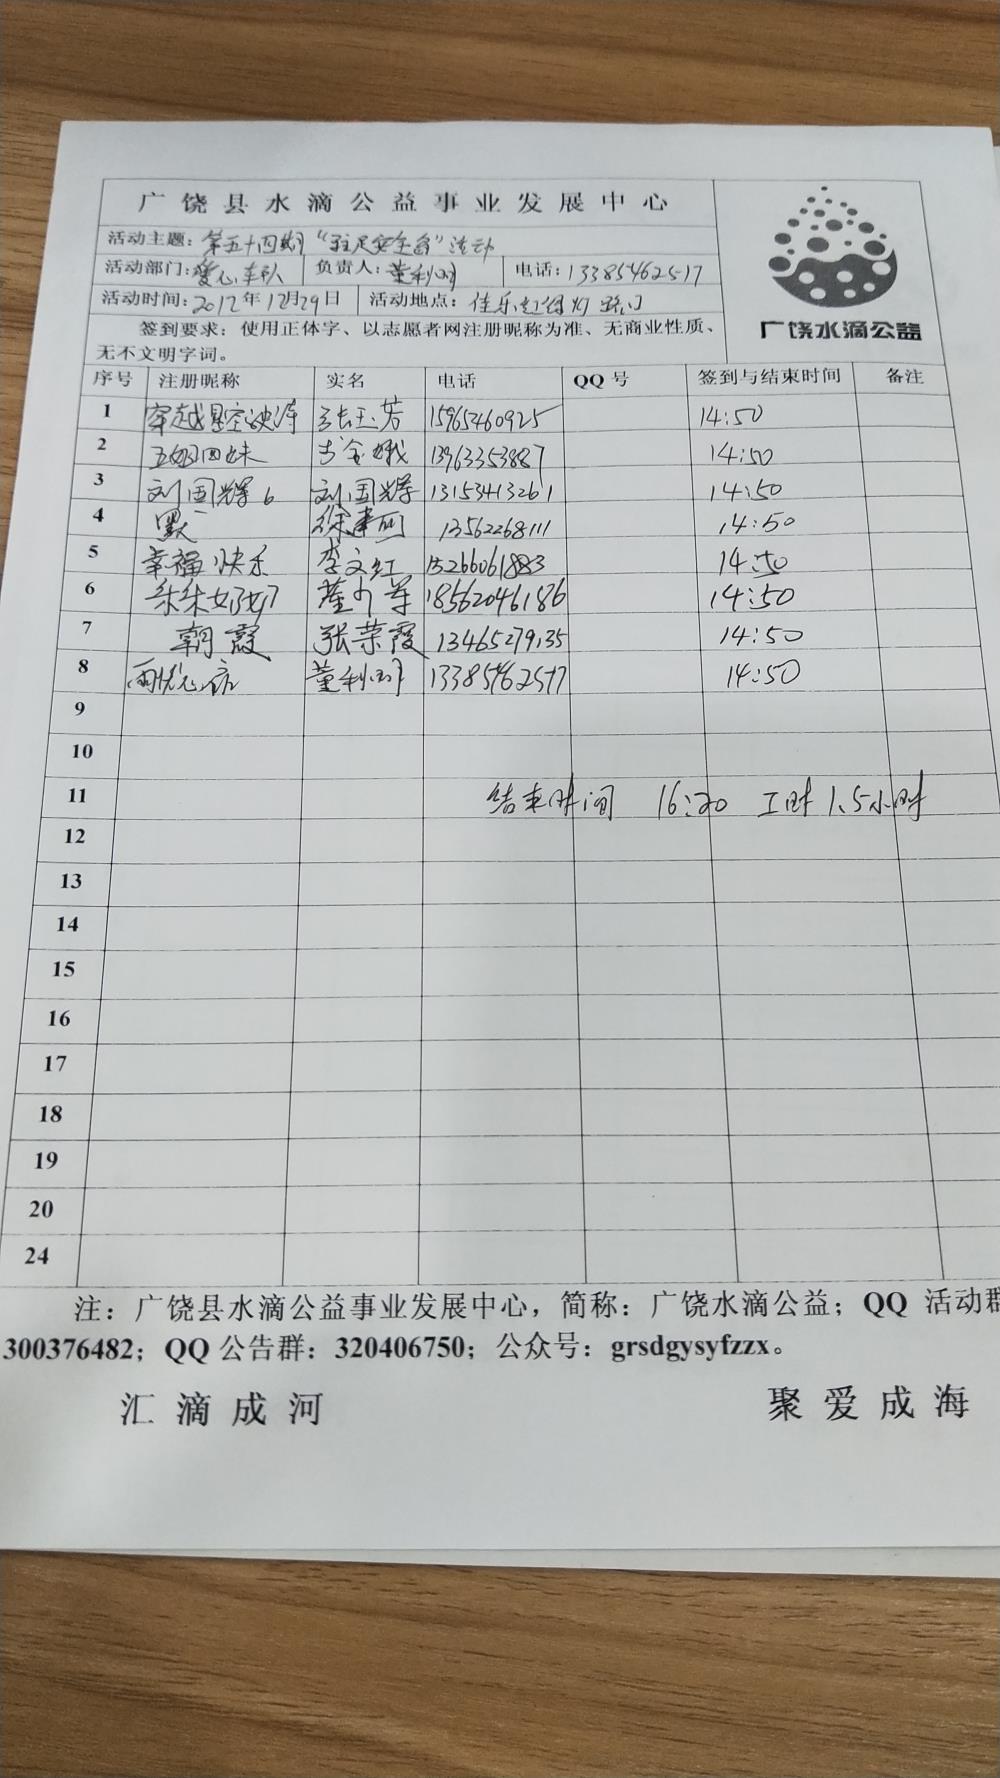 广饶县水滴公益事业发展中心
活动主题：第五十四期“驻足安全岛”活动
活动部门：爱心车队 负责人：董利 电话：13385462517
活动时间：2017年12月29日 活动地点：佳乐红绿灯路口
签到要求：使用正体字、以志愿者网注册昵称为准、无商业性质、
无不文明字词。
广饶水滴公益
序号 注册昵称 实名 电话 QQ号 签到与结束时间 备注
1 穿越星空 张玉芳 15965460925 14:50
2 五姐四妹 金娥 13963353887 14:50
3 刘国辉6 刘国辉 13153413261 14:50
4 徐 13562268111 14:50
5 幸福快乐 李文红 15266061883 14:50
6 朵朵奶奶 董军 18562046186 14:50
7 朝霞 张荣霞 13465279135 14:50
8 董利 13385462517 14:50
9
10
11 结束时间 16:20 工时1.5小时
12
13
14
15
16
17
18
19
20
24
注：广饶县水滴公益事业发展中心，简称：广饶水滴公益；QQ 活动群
300376482；QQ公告群：320406750；公众号：grsdgysyfzzx。
汇滴成河 聚爱成海